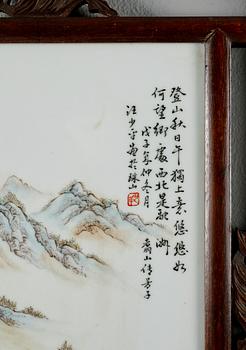 登山秋日午獨上意悠悠如
何望鄉處西北是融
洲
戊子年仲冬月
汪少平畫於珠山
翥山傅芳子